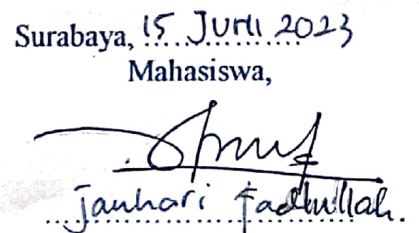 Surabaya, 15 Juni 2023
Mahasiswa,
Jauhari Fadlullah.